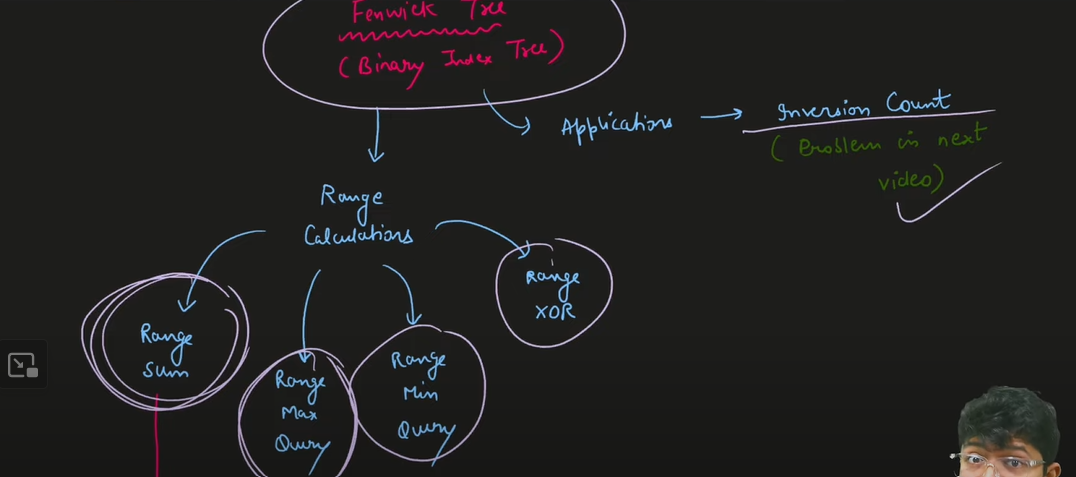 Fenwick Tree
(Binary Index Tree)
Applications
Inversion Count
(Problem in next
video)
Range
Calculations
Range
Sum
Range
Max
Query
Range
Min
Query
Range
XOR